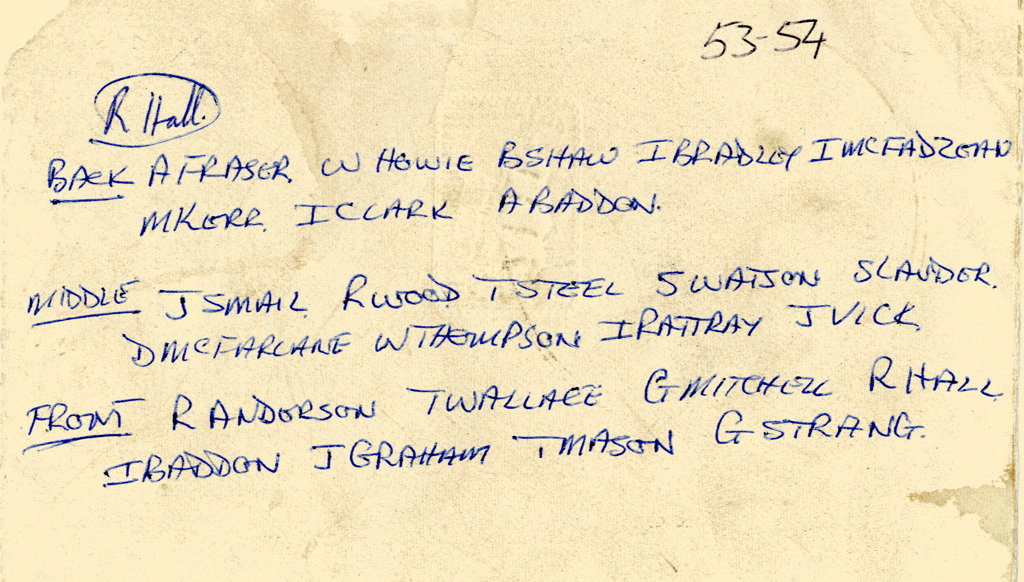 53-54
R Hall.
BACK A FRASER. W HOWIE B SHAW I BRADLEY I MCFADZEAN
M KERR. I C CLARK A BADDON.
MIDDLE J SMAIL R WOOD T STEEL S WATSON S LAUDER.
D MCFARLANE W THOMPSON I RATTRAY J VICK.
FRONT R ANDERSON T WALLACE G MITCHELL R HALL
I BADDON J GRAHAM T MASON G STRANG.